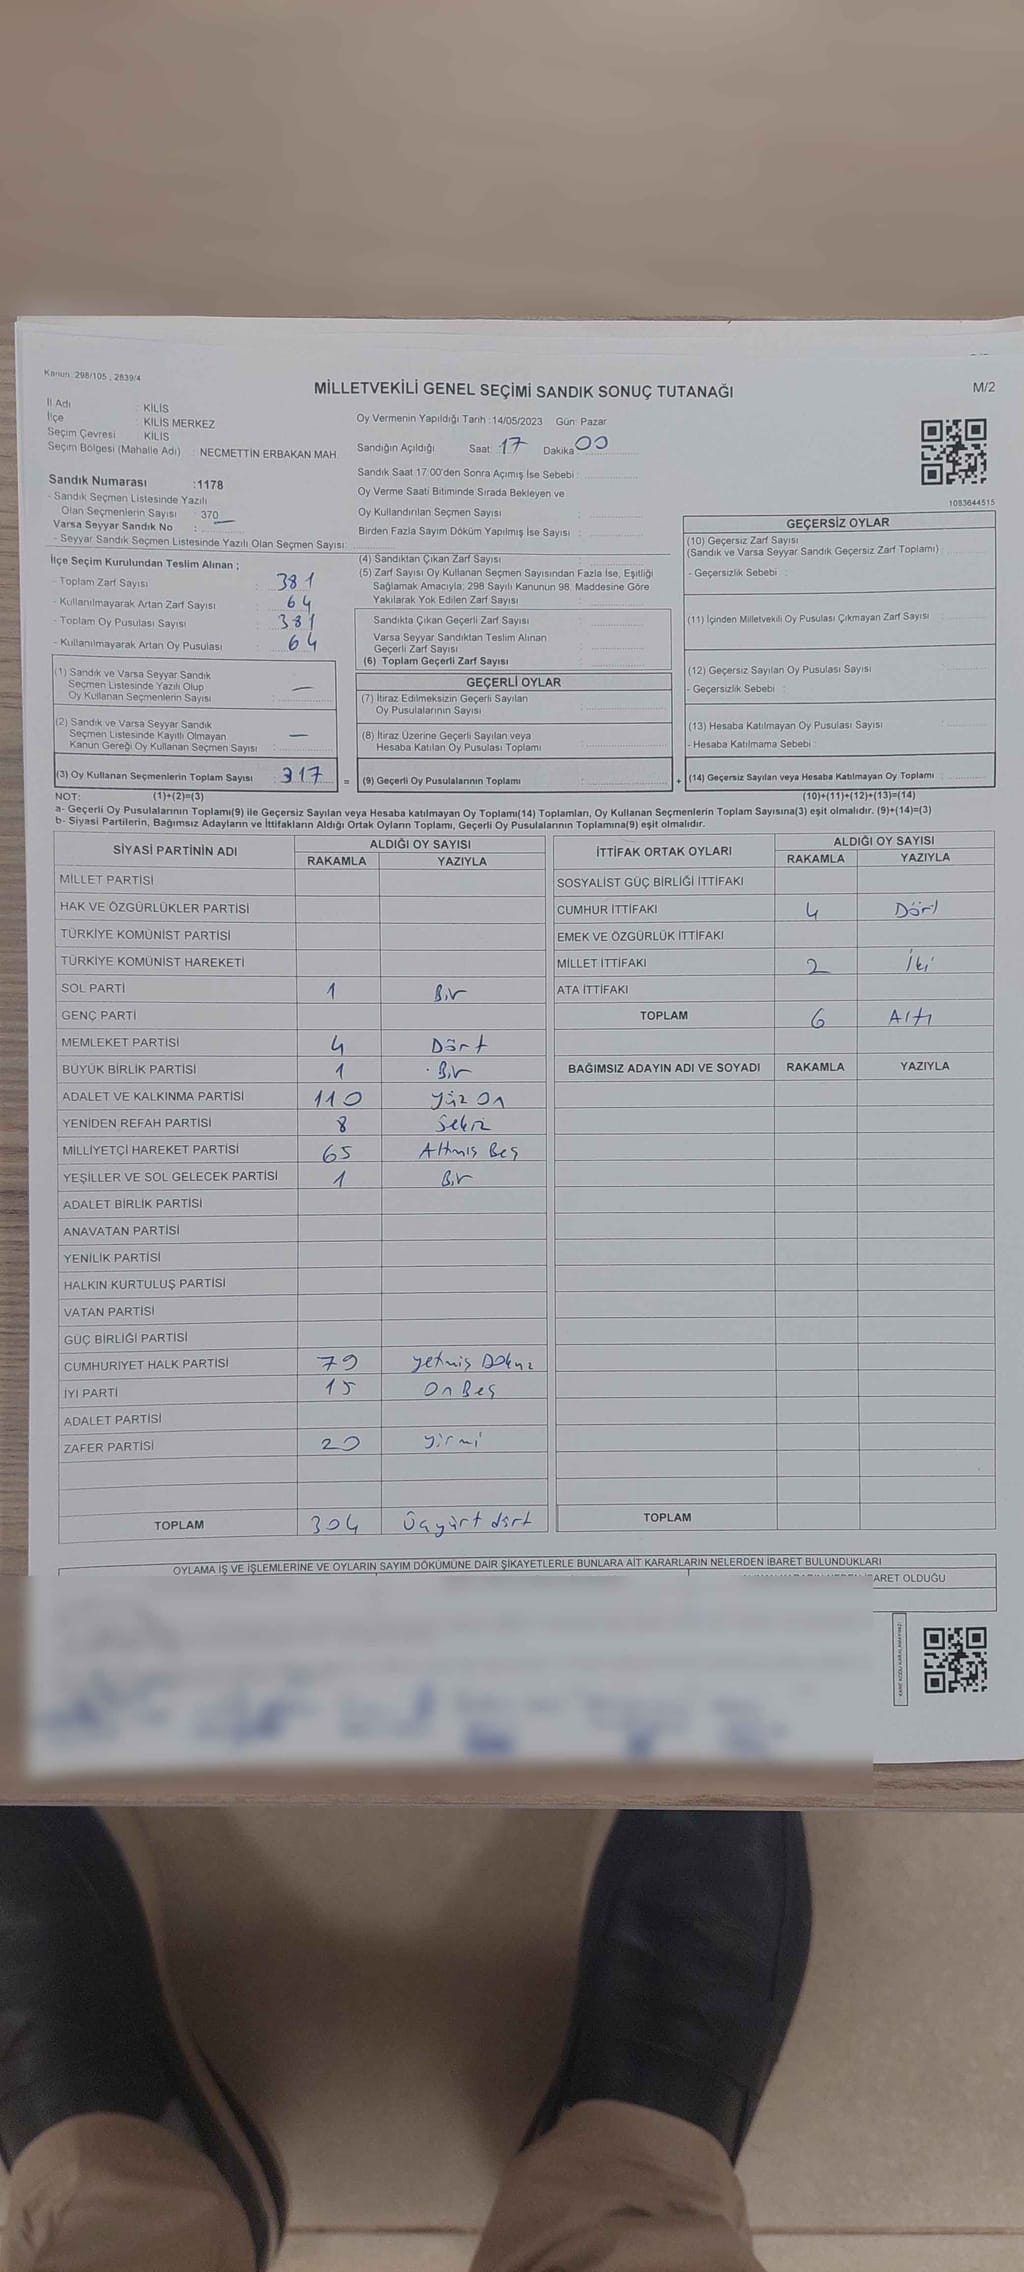 Kanun: 298/105 , 2839/4
MİLLETVEKİLİ GENEL SEÇİMİ SANDIK SONUÇ TUTANAĞI
M/2
İl Adı : KİLİS
İlçe : KİLİS MERKEZ
Seçim Çevresi : KİLİS
Seçim Bölgesi (Mahalle Adı) : NECMETTİN ERBAKAN MAH.
Oy Vermenin Yapıldığı Tarih :14/05/2023 Gün: Pazar
Sandığın Açıldığı Saat: 17 Dakika 00
Sandık Saat 17:00'den Sonra Açımış İse Sebebi :
Oy Verme Saati Bitiminde Sırada Bekleyen ve
Oy Kullandırılan Seçmen Sayısı :
Birden Fazla Sayım Döküm Yapılmış İse Sayısı :
1083644515
Sandık Numarası :1178
- Sandık Seçmen Listesinde Yazılı
Olan Seçmenlerin Sayısı : 370
Varsa Seyyar Sandık No :
- Seyyar Sandık Seçmen Listesinde Yazılı Olan Seçmen Sayısı:
İlçe Seçim Kurulundan Teslim Alınan ;
- Toplam Zarf Sayısı : 381
- Kullanılmayarak Artan Zarf Sayısı : 64
- Toplam Oy Pusulası Sayısı : 381
- Kullanılmayarak Artan Oy Pusulası : 64
(1) Sandık ve Varsa Seyyar Sandık
Seçmen Listesinde Yazılı Olup
Oy Kullanan Seçmenlerin Sayısı : —
(2) Sandık ve Varsa Seyyar Sandık
Seçmen Listesinde Kayıllı Olmayan
Kanun Gereği Oy Kullanan Seçmen Sayısı : —
(3) Oy Kullanan Seçmenlerin Toplam Sayısı : 317
(4) Sandıktan Çıkan Zarf Sayısı :
(5) Zarf Sayısı Oy Kullanan Seçmen Sayısından Fazla İse, Eşitliği
Sağlamak Amacıyla; 298 Sayılı Kanunun 98. Maddesine Göre
Yakılarak Yok Edilen Zarf Sayısı :
Sandıkta Çıkan Geçerli Zarf Sayısı :
Varsa Seyyar Sandıktan Teslim Alınan
Geçerli Zarf Sayısı :
(6) Toplam Geçerli Zarf Sayısı :
GEÇERLİ OYLAR
(7) İtiraz Edilmeksizin Geçerli Sayılan
Oy Pusulalarının Sayısı :
(8) İtiraz Üzerine Geçerli Sayılan veya
Hesaba Katılan Oy Pusulası Toplamı :
= (9) Geçerli Oy Pusulalarının Toplamı :
GEÇERSİZ OYLAR
(10) Geçersiz Zarf Sayısı
(Sandık ve Varsa Seyyar Sandık Geçersiz Zarf Toplamı) :
- Geçersizlik Sebebi :
(11) İçinden Milletvekili Oy Pusulası Çıkmayan Zarf Sayısı :
(12) Geçersiz Sayılan Oy Pusulası Sayısı :
- Geçersizlik Sebebi :
(13) Hesaba Katılmayan Oy Pusulası Sayısı :
- Hesaba Katılmama Sebebi :
+ (14) Geçersiz Sayılan veya Hesaba Katılmayan Oy Toplamı :
NOT: (1)+(2)=(3)
(10)+(11)+(12)+(13)=(14)
a- Geçerli Oy Pusulalarının Toplamı(9) ile Geçersiz Sayılan veya Hesaba katılmayan Oy Toplamı(14) Toplamları, Oy Kullanan Seçmenlerin Toplam Sayısına(3) eşit olmalıdır. (9)+(14)=(3)
b- Siyasi Partilerin, Bağımsız Adayların ve İttifakların Aldığı Ortak Oyların Toplamı, Geçerli Oy Pusulalarının Toplamına(9) eşit olmalıdır.
SİYASİ PARTİNİN ADI ALDIĞI OY SAYISI
RAKAMLA YAZIYLA
MİLLET PARTİSİ
HAK VE ÖZGÜRLÜKLER PARTİSİ
TÜRKİYE KOMÜNİST PARTİSİ
TÜRKİYE KOMÜNİST HAREKETİ
SOL PARTİ 1 Bir
GENÇ PARTİ
MEMLEKET PARTİSİ 4 Dört
BÜYÜK BİRLİK PARTİSİ 1 Bir
ADALET VE KALKINMA PARTİSİ 110 Yüz On
YENİDEN REFAH PARTİSİ 8 Sekiz
MİLLİYETÇİ HAREKET PARTİSİ 65 Altmış Beş
YEŞİLLER VE SOL GELECEK PARTİSİ 1 Bir
ADALET BİRLİK PARTİSİ
ANAVATAN PARTİSİ
YENİLİK PARTİSİ
HALKIN KURTULUŞ PARTİSİ
VATAN PARTİSİ
GÜÇ BİRLİĞİ PARTİSİ
CUMHURİYET HALK PARTİSİ 79 Yetmiş Dokuz
İYİ PARTİ 15 On Beş
ADALET PARTİSİ
ZAFER PARTİSİ 20 Yirmi
TOPLAM 304 Üçyürt dört
İTTİFAK ORTAK OYLARI ALDIĞI OY SAYISI
RAKAMLA YAZIYLA
SOSYALİST GÜÇ BİRLİĞİ İTTİFAKI
CUMHUR İTTİFAKI 4 Dört
EMEK VE ÖZGÜRLÜK İTTİFAKI
MİLLET İTTİFAKI 2 İki
ATA İTTİFAKI
TOPLAM 6 Altı
BAĞIMSIZ ADAYIN ADI VE SOYADI RAKAMLA YAZIYLA
TOPLAM
OYLAMA İŞ VE İŞLEMLERİNE VE OYLARIN SAYIM DÖKÜMÜNE DAİR ŞİKAYETLERLE BUNLARA AİT KARARLARIN NELERDEN İBARET BULUNDUKLARI
OLDUĞU
KARE KODU KARALAMAYINIZ